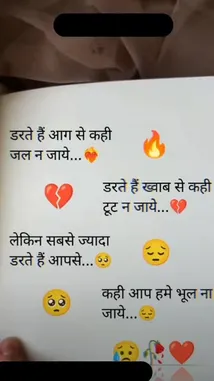 डरते हैं आग से कही
जल न जाये...❤️‍🔥
डरते हैं ख्वाब से कही
टूट न जाये...💔
लेकिन सबसे ज्यादा
डरते हैं आपसे...🥺
कही आप हमे भूल ना
जाये...😔